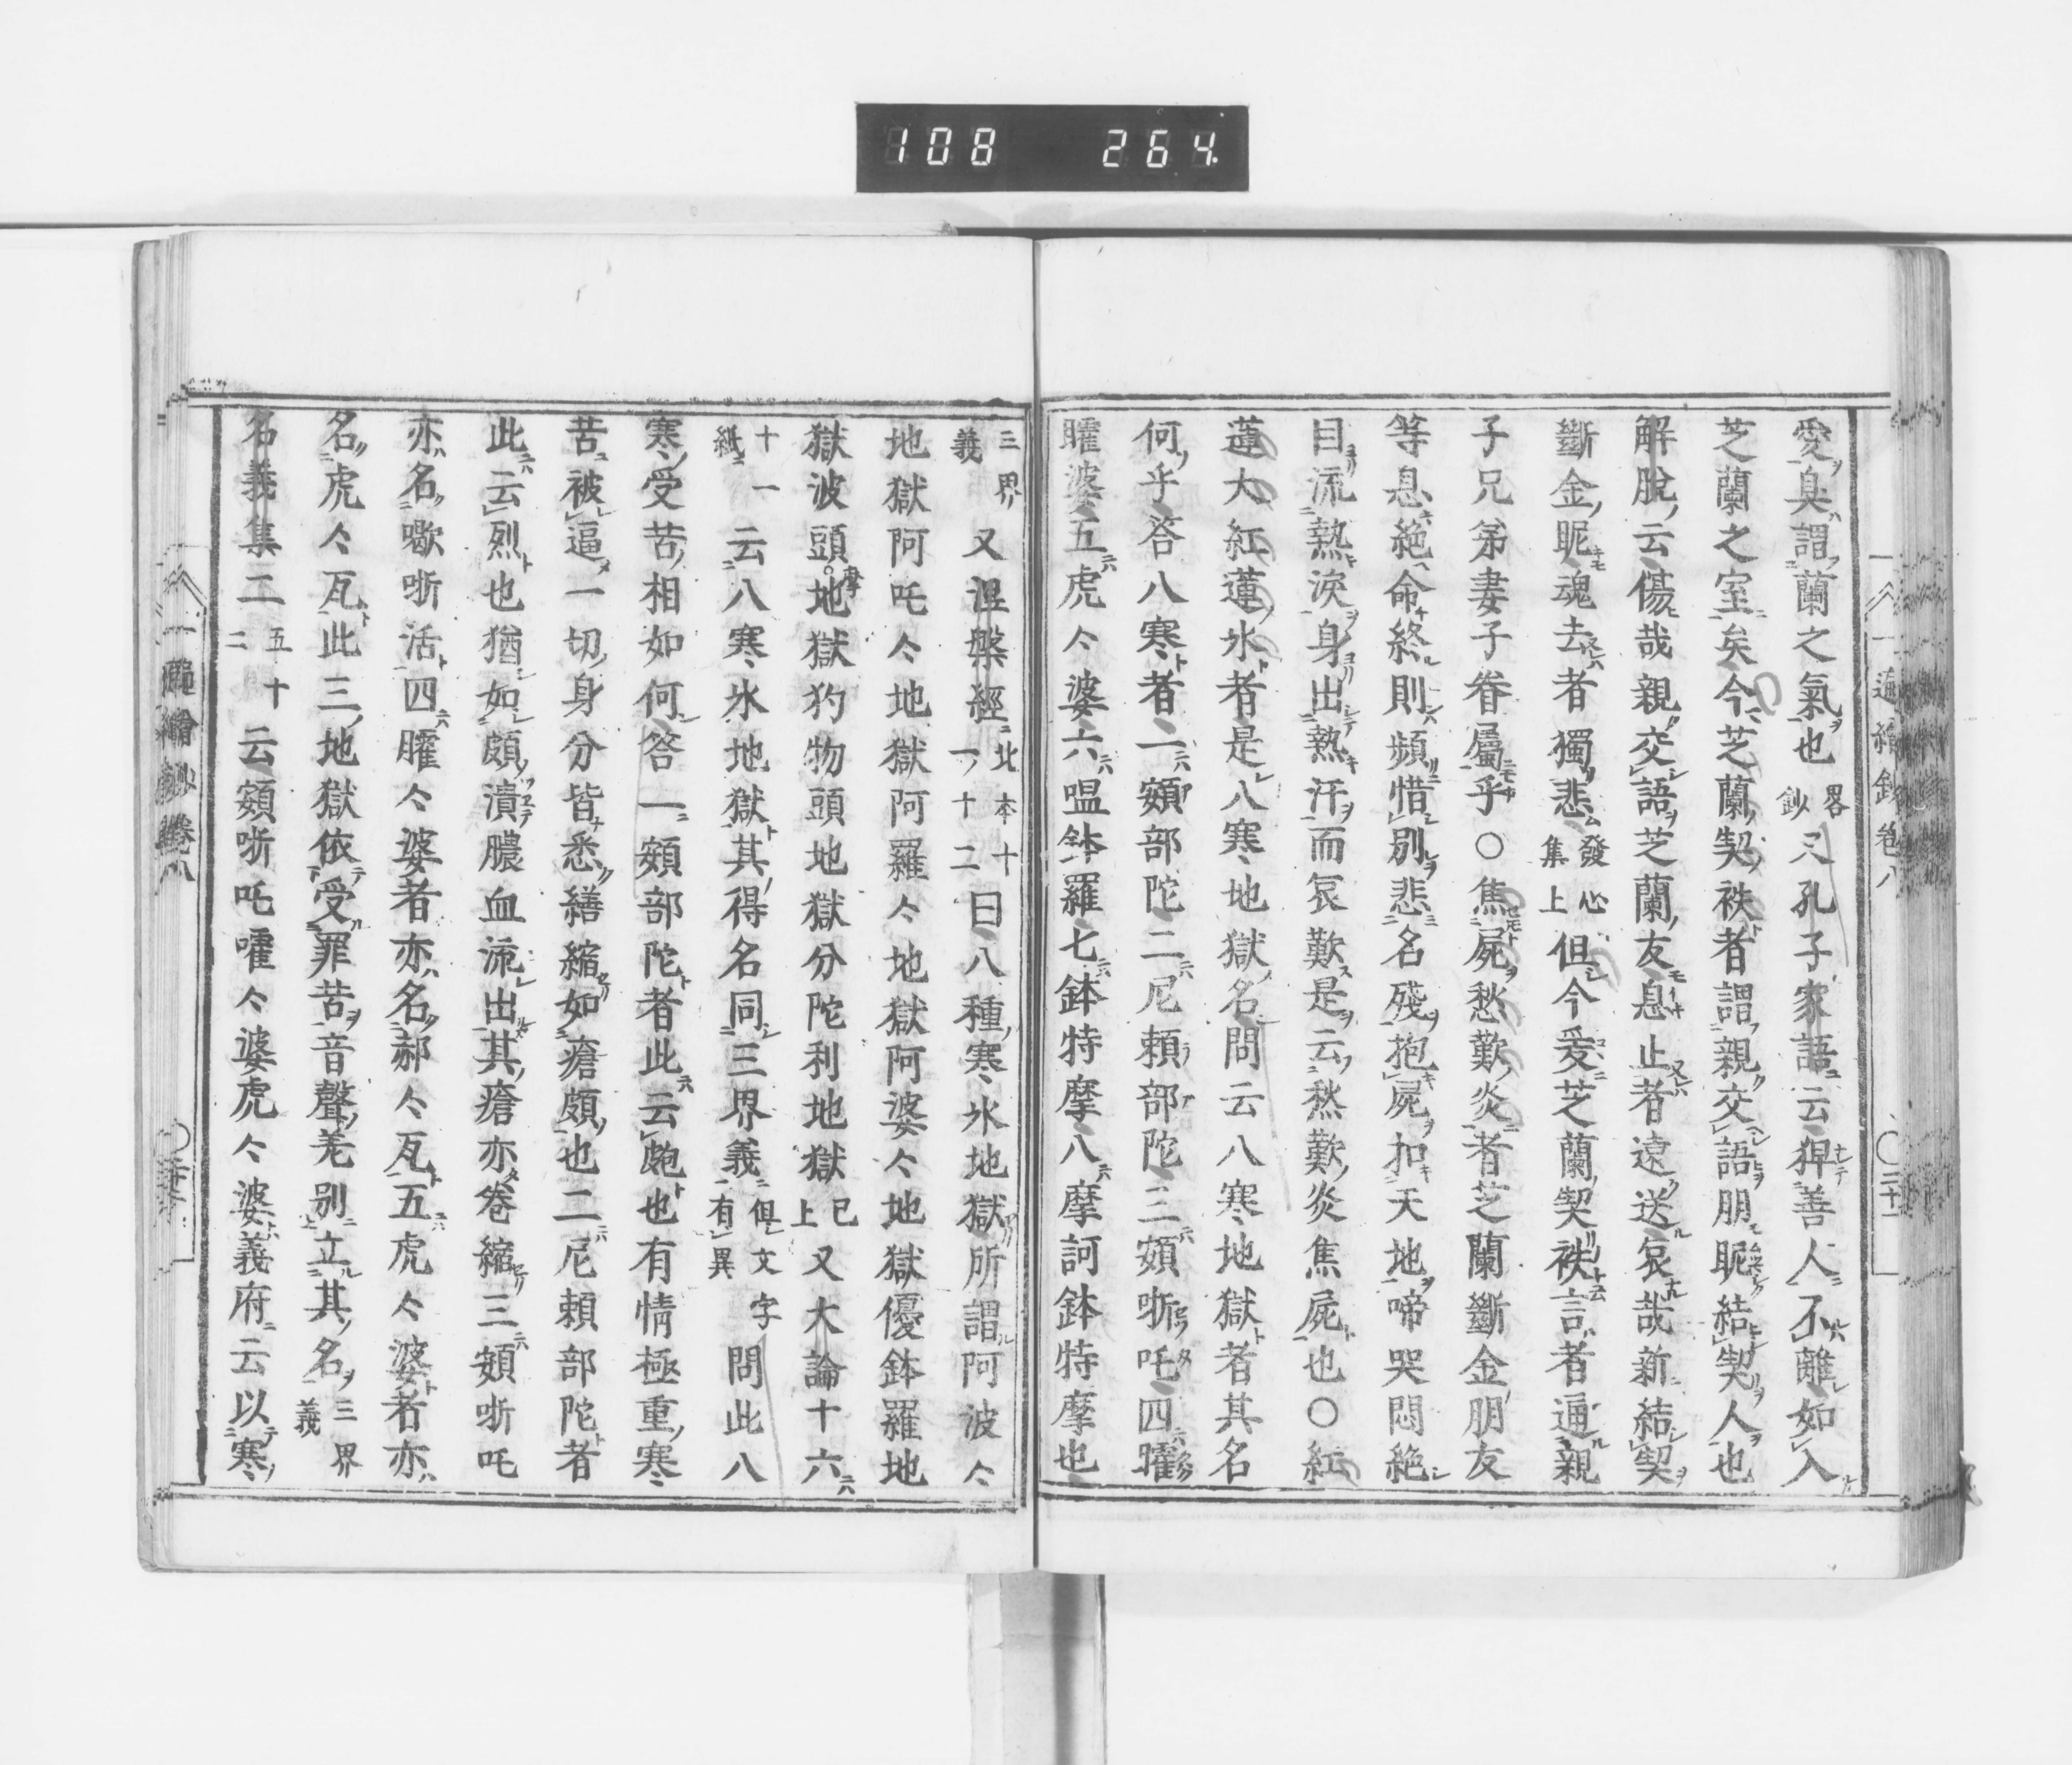 108 264
愛臭謂蘭之氣也畧鈔又孔子家語云狎善人不離如入
芝蘭之室矣今芝蘭契袟者謂親交語朋昵結契人也
解脫云傷哉親交語芝蘭友息止者遠送哀哉新結契
斷金昵魂去者獨悲發心集上但今爰芝蘭契袟言者通親
子兄弟妻子眷屬乎○焦屍愁歎炎者芝蘭斷金朋友
等息絶命終則頻惜別悲名殘抱屍扣天地啼哭悶絶
目流熱淚身出熱汗而哀歎是云愁歎炎焦屍也○紅
蓮大紅蓮氷者是八寒地獄名問云八寒地獄者其名
何乎答八寒者一頞部陀二尼賴部陀三頞哳吒四矐
矐婆五虎々婆六嗢鉢羅七鉢特摩八摩訶鉢特摩也
三界義又涅槃經北本十一十二曰八種寒氷地獄所謂阿波々
地獄阿吒々地獄阿羅々地獄阿婆々地獄優鉢羅地
獄波頭摩地獄狗物頭地獄分陀利地獄已上又大論十六
十一紙云八寒氷地獄其得名同三界義俱有文字異問此八
寒受苦相如何答一頞部陀者此云皰也有情極重寒
苦被逼一切身分皆悉繕縮如瘡皰也二尼賴部陀者
此云烈也猶如皰潰膿血流出其瘡亦卷縮三頞哳吒
亦名嚱哳活四臛々婆者亦名郝々瓦五虎々婆者亦
名虎々瓦此三地獄依受罪苦音聲差別立其名三界義
名義集二五十二云頞哳吒嚯々婆虎々婆義府云以寒
一遍繪鈔卷八